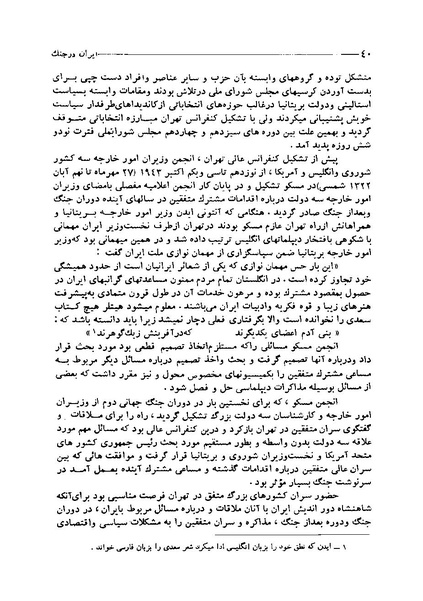 ۴۰ ایران در جنگ
متشکل توده و گروههای وابسته بآن حزب و سایر عناصر وافراد دست چپی برای
بدست آوردن کرسیهای مجلس شورای ملی درتلاش بودند ومقامات وابسته بسیاست
استالینی ودولت بریتانیا درغالب حوزه‌های انتخاباتی ازکاندیداهای‌طرفدار سیاست
خویش پشتیبانی میکردند ولی با تشکیل کنفرانس تهران مبارزه انتخاباتی متوقف
گردید و بهمین علت بین دوره های سیزدهم و چهاردهم مجلس شورایملی فترت نودو
شش روزه پدید آمد .
پیش از تشکیل کنفرانس عالی تهران ، انجمن وزیران امور خارجه سه کشور
شوروی وانگلیس و آمریکا ، از نوزدهم تاسی ویکم اکتبر ۱۹۴۳ (۲۷ مهرماه تا نهم آبان
۱۳۲۲ شمسی)در مسکو تشکیل و در پایان کار انجمن اعلامیه مفصلی بامضای وزیران
امور خارجه سه دولت درباره اقدامات مشترك متفقین در سالهای آینده دوران جنگ
وبعداز جنگ صادر گردید . هنگامی که آنتونی ایدن وزیر امور خارجه بریتانیا و
همراهانش ازراه تهران عازم مسکو بودند درتهران ازطرف نخست‌وزیر ایران مهمانی
با شکوهی بافتخار دیپلماتهای انگلیس ترتیب داده شد و در همین میهمانی بود که‌وزیر
امور خارجه بریتانیا ضمن سپاسگزاری از مهمان نوازی ملت ایران گفت :
«این بار حس مهمان نوازی که یکی از شعائر ایرانیان است از حدود همیشگی
خود تجاوز کرده است . در انگلستان تمام مردم ممنون مساعدتهای گرانبهای ایران در
حصول بمقصود مشترك بوده و مرهون خدمات آن در طول قرون متمادی به‌پیشرفت
هنرهای زیبا و قوه فکریه وادبیات ایران می‌باشند . معلوم میشود هیتلر هیچ کتاب
سعدی را نخوانده است والا بگرفتاری فعلی دچار نمیشد زیرا باید دانسته باشد که :
بنی آدم اعضای یکدیگرند که‌درآفرینش زیك‌گوهرند۱»
انجمن مسکو مسائلی راکه مستلزم‌اتخاذ تصمیم قطعی بود مورد بحث قرار
داد ودرباره آنها تصمیم گرفت و بحث واخذ تصمیم درباره مسائل دیگر مربوط به
مساعی مشترك متفقین را بکمیسیونهای مخصوص محول و نیز مقرر داشت که بعضی
از مسائل بوسیله مذاکرات دیپلماسی حل و فصل شود .
انجمن مسکو ، که برای نخستین بار در دوران جنگ جهانی دوم از وزیران
امور خارجه و کارشناسان سه دولت بزرگ تشکیل گردید ، راه را برای ملاقات و
گفتگوی سران متفقین در تهران بازکرد و دراین کنفرانس عالی بود که مسائل مهم مورد
علاقه سه دولت بدون واسطه و بطور مستقیم مورد بحث رئیس جمهوری کشور های
متحد آمریکا و نخست‌وزیران شوروی و بریتانیا قرار گرفت و موافقت هائی که بین
سران عالی متفقین درباره اقدامات گذشته و مساعی مشترك آینده بعمل آمد در
سرنوشت جنگ بسیار مؤثر بود .
حضور سران کشورهای بزرگ متفق در تهران فرصت مناسبی بود برای‌آنکه
شاهنشاه دور اندیش ایران با آنان ملاقات و درباره مسائل مربوط بایران ، در دوران
جنگ ودوره بعداز جنگ ، مذاکره و سران متفقین را به مشکلات سیاسی واقتصادی
۱ ــ ایدن که نطق خود را بزبان انگلیسی ادا میکرد شعر سعدی را بزبان فارسی خواند .